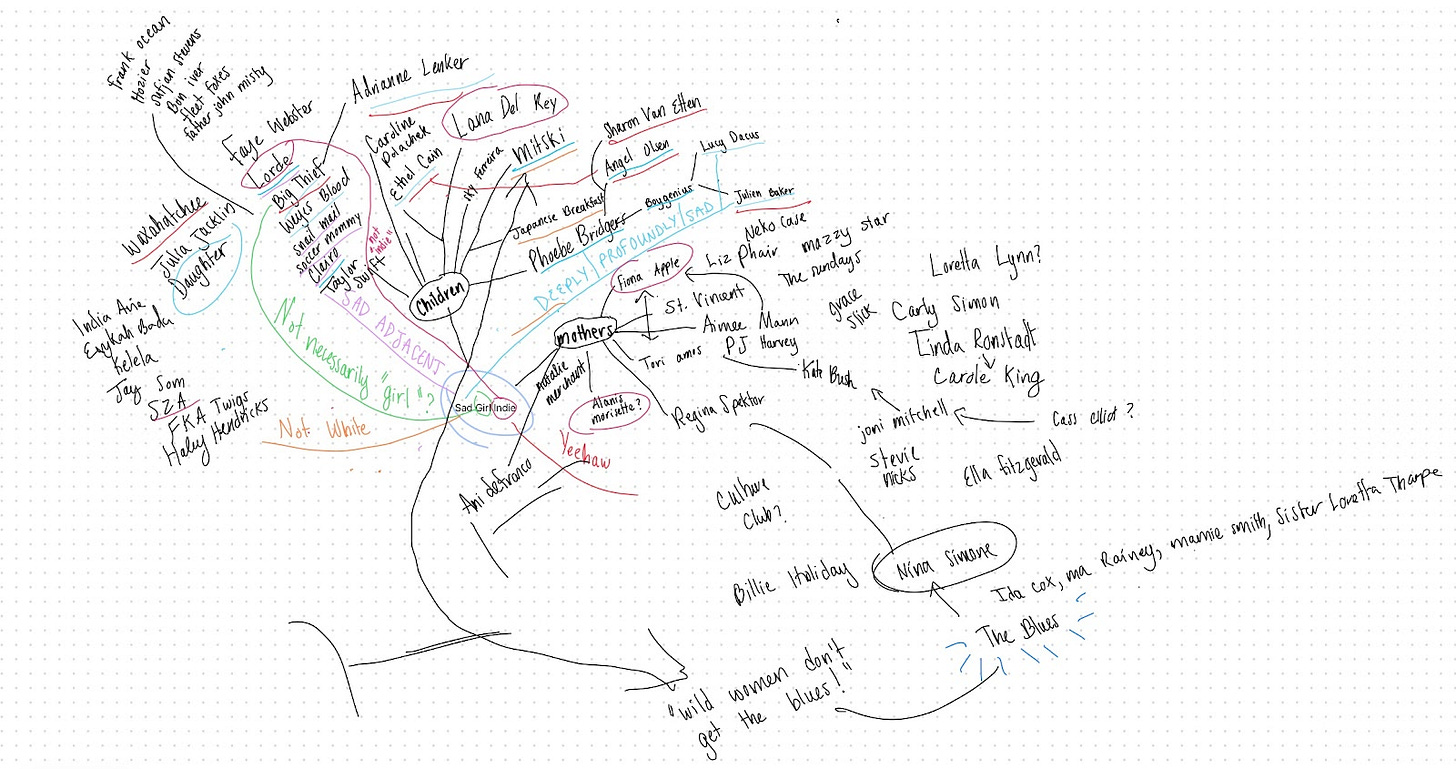 frank ocean
Hozier
sufjan stevens
Bon iver
fleet foxes
father john misty
Faye Webster
Lorde
Big Thief
Weyes Blood
snail mail
soccer mommy
Clairo
Taylor
Swift
"not
"indie"
Adrianne Lenker
Caroline
Polachek
Ethel Cain
Lana Del Rey
sky Ferreira
Mitski
Sharon Van Etten
Angel Olsen
Lucy Dacus
Japanese Breakfast
Boygenius
Julien Baker
Phoebe Bridgers
Children
DEEPLY/PROFOUNDLY/SAD
Waxahatchee
Julia Jacklin
Daughter
India Arie
Erykah Badu
Kelela
Jay Som
SZA
FKA Twigs
Haley Hendricks
SAD ADJACENT
Not necessarily "girl"?
Not White
Sad Girl Indie
Yeehaw
mothers
Fiona Apple
Liz Phair
Neko Case
mazzy star
The sundays
St. Vincent
Aimee Mann
PJ Harvey
Tori amos
natalie
merchant
Alanis
morisette?
Regina Spektor
Kate Bush
grace
slick
Loretta Lynn?
Carly Simon
Linda Ronstadt
Carole King
joni mitchell
Cass elliot?
stevie
nicks
Ella fitzgerald
Ani defranco
Culture
Club?
Billie Holiday
Nina Simone
Ida cox, ma Rainey, mamie smith, Sister Loretta Tharpe
The Blues
"wild women don't
get the blues!"